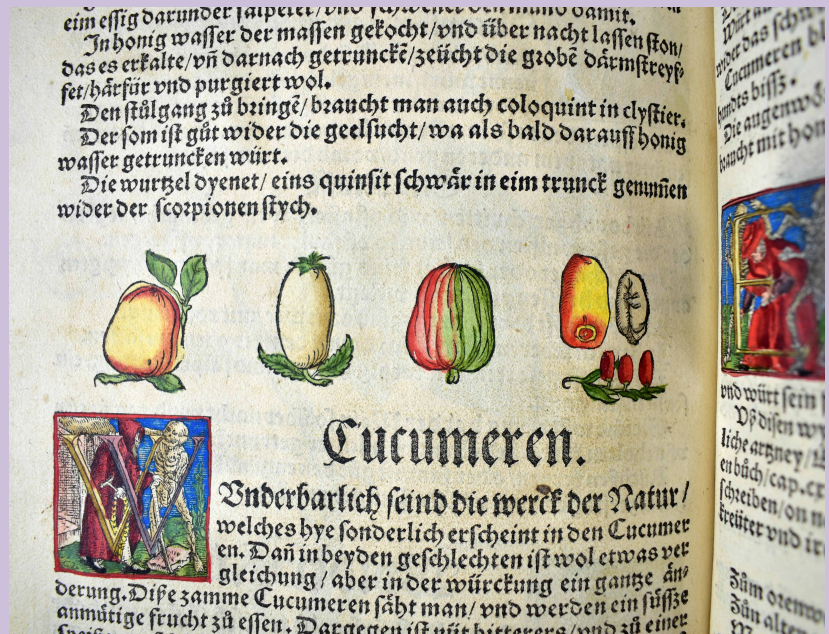 eim essig darunder salpeter/ vnd schwencke den mund damit.
In honig wasser der massen gekocht/vnd über nacht lassen ston/
das es erkalte/vñ darnach getrunckē/zeücht die grobē därmstreyf-
fet/härfür vnd purgiert wol.
Den stůlgang zů bringē/ braucht man auch coloquint in clystier.
Der som ist gůt wider die geelsucht/wa als bald darauff honig
wasser getruncken würt.
Die wurtzel dyenet/ eins quinsit schwär in eim trunck genum̃en
wider der scorpionen stych.
Cucumeren.
WVnderbarlich seind die werck der Natur/
welches hye sonderlich erscheint in den Cucumer
en. Dañ in beyden geschlechten ist wol etwas ver
gleichung/ aber in der würckung ein gantze än-
derung. Diße zamme Cucumeren säht man/ vnd werden ein süssze
anmůtige frucht zů essen. Dargegen ist nüt bitterers/vnd zů einer
Würt
wider das
Cucumeren
hundts bissz.
Die augen
braucht mit hon
vnd würt sein
Vß disen
liche artzney
en bůch/cap.
schreiben/on
kreüter vnd
Zům orenwe
Zůn alten